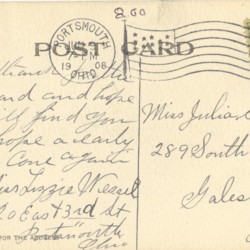 8 60
PORTSMOUTH
PM
1908
OHIO
POST CARD
Thanks for the
card and hope
will find you
hope a early
Come again
Miss Lizzie Wessel
20 East 3rd St
Portsmouth
Ohio
Miss Julia
289 South
Gales
FOR THE ADDRESS